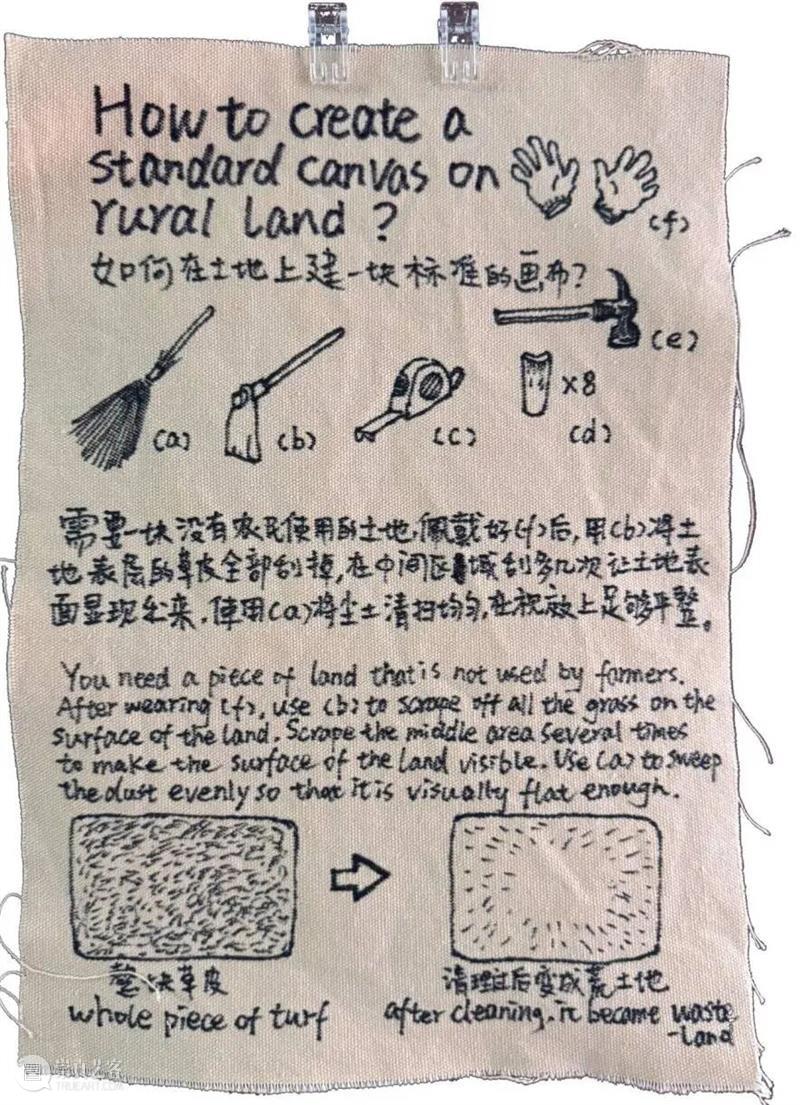 How to create a
standard canvas on
rural land ?
(f)
如何在土地上建一块标准的画布?
(e)
(a)
(b)
(c)
×8
(d)
需要一块没有农民使用的土地,佩戴好(f)后,用(b)将土
地表层的草皮全部刮掉,在中间区域刮多几次让土地表
面显现出来.使用(a)将尘土清扫均匀,在视效上足够平整。
You need a piece of land that is not used by farmers.
After wearing (f), use (b) to scrope off all the grass on the
surface of the land. Scrape the middle area several times
to make the surface of the land visible. Use (a) to sweep
the dust evenly so that it is visually flat enough.
整块草皮
whole piece of turf
清理过后变成荒土地
after cleaning. it became waste
-land
TRUEART.COM